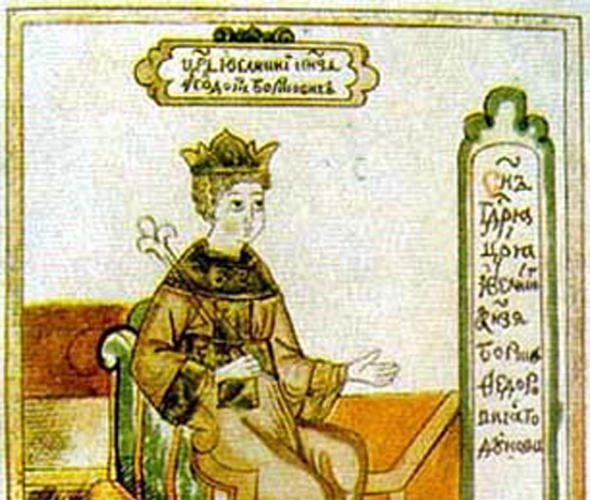 ц҃рь і великиі кн҃зь
ѳеодоⷬ Борисовичъ
Сн҃ъ
Гдⷭ҇рѧ
ц҃рѧ
і великⷢ
кн҃зя
бориса
ѳедоро
вича го
дунова